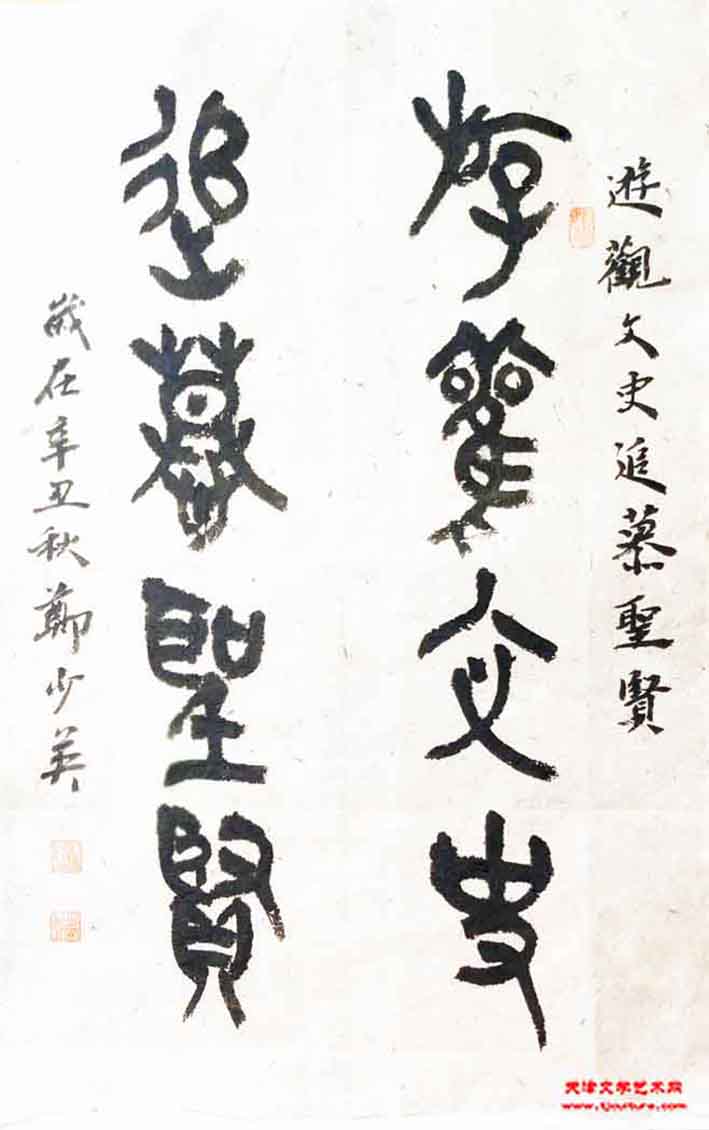 遊觀文史追慕聖賢
游觀文史
追慕聖賢
歲在辛丑秋鄭少英
天津文学艺术网